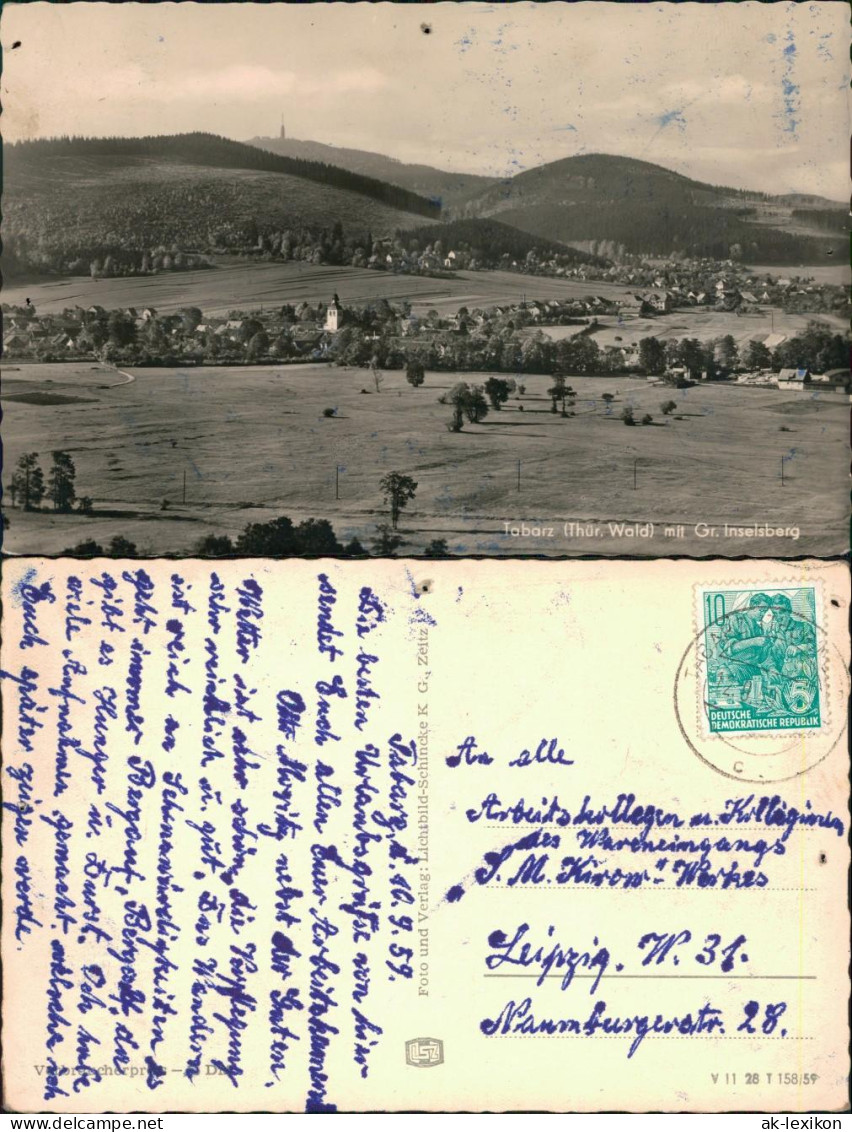 Tabarz (Thür. Wald) mit Gr. Inselsberg
Tabarz, d. 10.9.59.
Die besten Urlaubsgrüße von hier
sendet Euch allen Euer Arbeitskamerad
Otto Moritz nebst der Guten.
Wetter ist sehr schön, die Verpflegung
sehr reichlich u. gut. Das Wandern
ist reich an Sehenswürdigkeiten es
geht immer Bergauf, Bergab, da
gibt es Hunger u. Durst. Ich habe
viele Aufnahmen gemacht welche ich
Euch später zeigen werde.
Foto und Verlag: Lichtbild-Schincke K G., Zeitz
10
5
DEUTSCHE
DEMOKRATISCHE REPUBLIK
TABARZ
c
An alle
Arbeitskollegen u. Kolleginnen
des Wareneingangs
"S. M. Kirow" Werkes
Leipzig. W. 31.
Naumburgerstr. 28.
LSZ
V 11 28 T 158/59
ak-lexikon.com